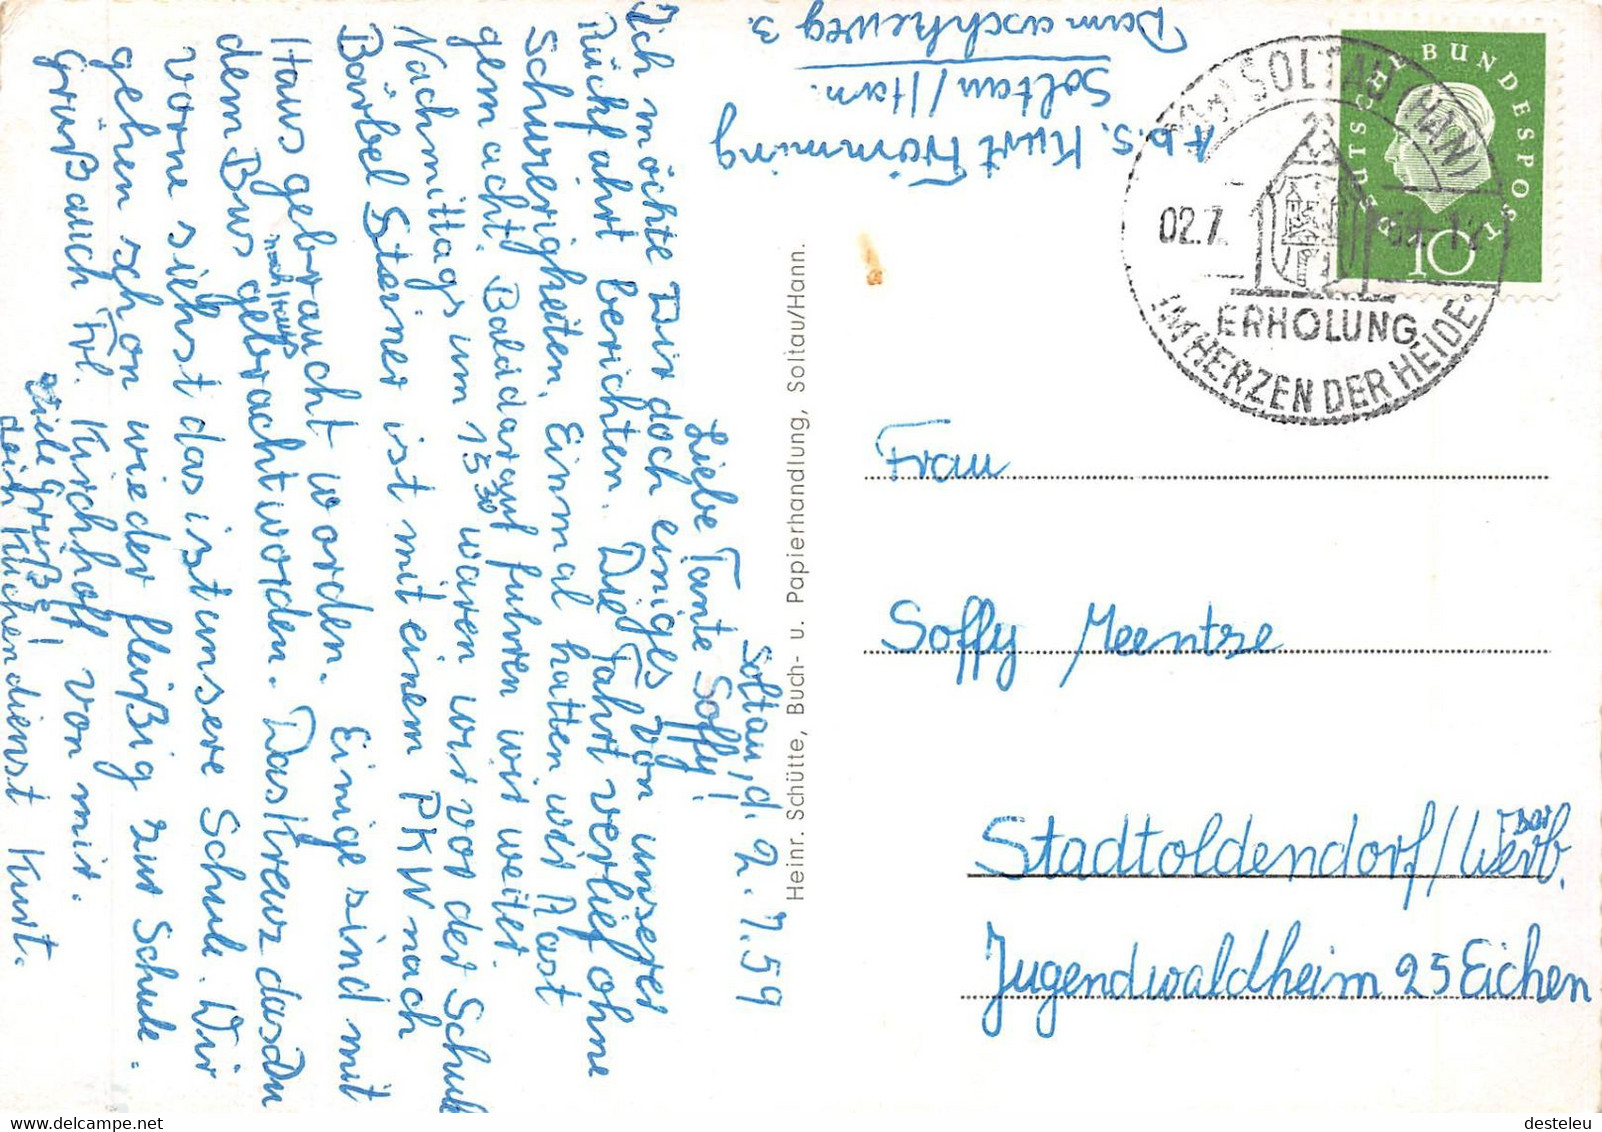 Soltau, d. 2.7.59
Liebe Tante Soffy!
Ich möchte Dir doch einiges von unserer
Rückfahrt berichten. Die Fahrt verlief ohne
Schwierigkeiten. Einmal hatten wir Rast
gemacht. Bald darauf fuhren wir weiter.
Nachmittags um 15 30 waren wir vor der Schule
Bärbel Sterner ist mit einem PKW nach
Haus gebraucht worden. Einige sind mit
dem Bus nach Haus gebracht worden. Das Kreuz das Du
vorne siehst das ist unsere Schule. Wir
gehen schon wieder fleißig zur Schule.
Grüß auch Frl. Kirchhoff von mir.
Viele Grüße!
dein Küchendienst Kurt.
Abs. Kurt Frömming
Soltau/Han.
Damaschkeweg 3.
Heinr. Schütte, Buch- u. Papierhandlung, Soltau/Hann.
SOLTAU (HAN)
02.7. 59-12
ERHOLUNG
IM HERZEN DER HEIDE
DEUTSCHE BUNDESPOST
10
Frau
Soffy Meentze
Stadtoldendorf/Werb.
Jugendwaldheim 25 Eichen
desteleu